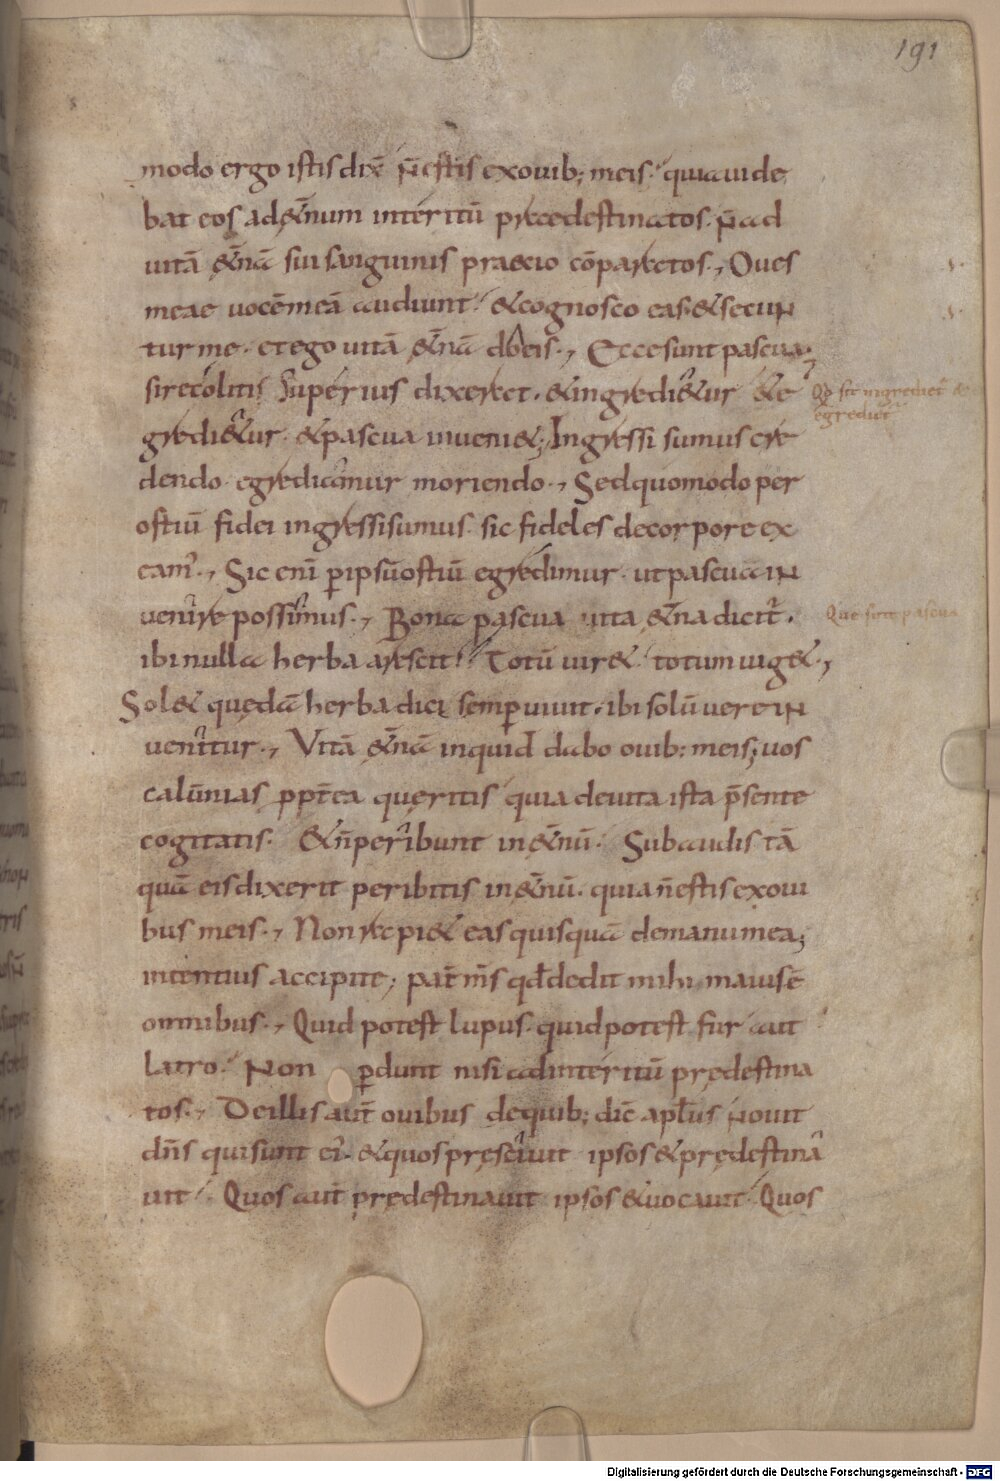 191
modo ergo istis dix̄ n̄ estis exouib; meis. quia uide
bat eos ad &̄num interitū praedestinatos. n̄ ad
uitā &̄nā sui sanguinis praecio cōparatos., Oues
meae uocē meā audiunt. & cognosco eas. & secun
tur me. et ego uitā &̄nā do eis., Ecce sunt pascua.
si recolitis superius dixerat. & ingredi&ur & e
gredi&ur. & pascua inueni&; Ingressi sumus cre
dendo. egrediamur moriendo., Sed quomodo per
ostiū fidei ingressi sumus. sic fideles de corpore ex
eam̄., Sic eni p̱ ipsū ostiū egredimur. ut pascua in
uenire possimus., Bona pascua uita &̄na dicit̄.
ibi nulla herba arescit. Totū uir& totum uig&.,
Sol& quędā herba dici semp̱ uiuit. ibi solū uere in
uenitur., Vitā &̄nā inquid dabo ouib; meis; uos
calūnias ppt̄ea queritis quia de uita ista p̄sente
cogitatis. & n̄ peribunt in &̄nū. Subaudis tā
quā eis dixerit peribitis in &̄nū. quia n̄ estis ex oui
bus meis., Non rapi& eas quisquā de manu mea;
intentius accipite; pat̄ m̄s qd̄ dedit mihi maius ē
omnibus., Quid potest lupus. quid potest fur aut
latro. Non p̱dunt nisi ad interitū prędestina
tos., De illis aut̄ ouibus de quib; dic̄ apl̄us nouit
dn̄s qui sunt ei. & quos presciuit ipsos & prędestina
uit. Quos aut̄ prędestinauit ipsos & uocauit. Quos
Qd̄ sit ingrediet̄ &
egrediet̄
Que sint pascua
Digitalisierung gefördert durch die Deutsche Forschungsgemeinschaft - DFG